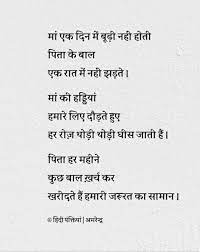 मां एक दिन में बूढ़ी नही होती
पिता के बाल
एक रात में नही झड़ते।
मां की हड्डियां
हमारे लिए दौड़ते हुए
हर रोज़ थोड़ी थोड़ी घीस जाती हैं।
पिता हर महीने
कुछ बाल ख़र्च कर
खरीदते हैं हमारी जरूरत का सामान।
© हिंदी पंक्तियां | अमरेन्द्र